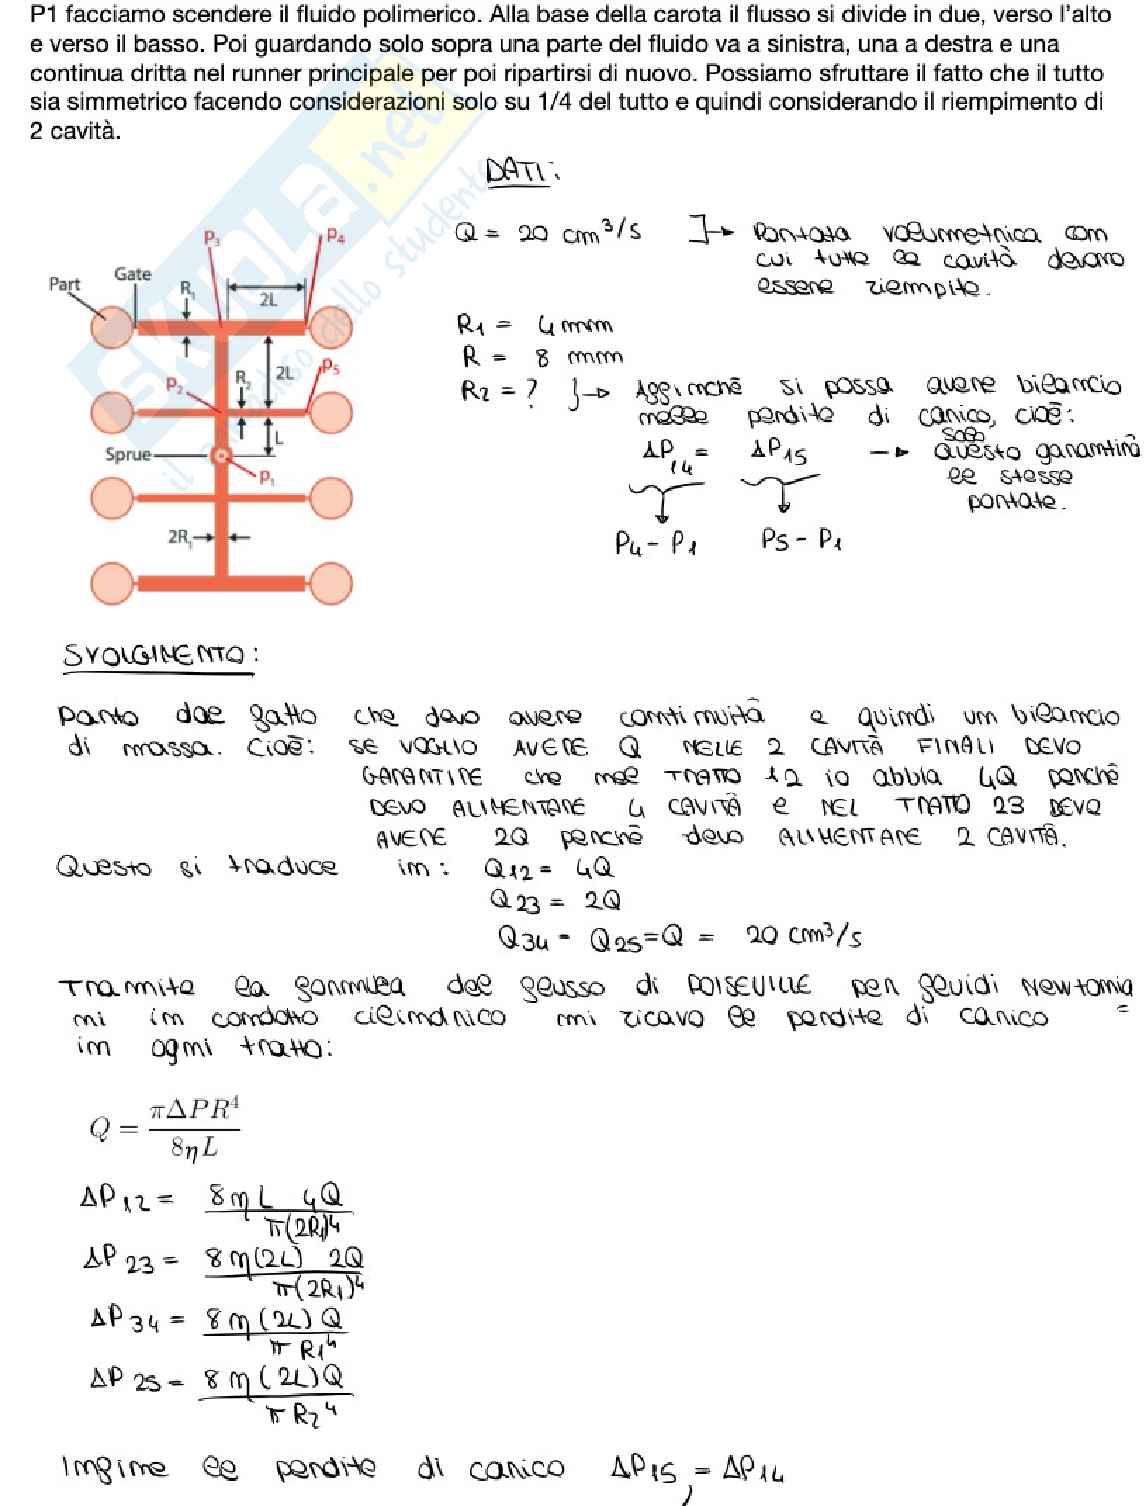 P1 facciamo scendere il fluido polimerico. Alla base della carota il flusso si divide in due, verso l'alto
e verso il basso. Poi guardando solo sopra una parte del fluido va a sinistra, una a destra e una
continua dritta nel runner principale per poi ripartirsi di nuovo. Possiamo sfruttare il fatto che il tutto
sia simmetrico facendo considerazioni solo su 1/4 del tutto e quindi considerando il riempimento di
2 cavità.
SKUOLA.net
il paradiso dello studente
DATI:
Q = 20 cm³/s ]→ Portata volumetrica con
cui tutte le cavità devono
essere riempite.
R1 = 4 mm
R = 8 mm
R2 = ? }→ Affinché si possa avere bilancio
nelle perdite di carico, cioè:
ΔP14 = ΔP15 → solo questo garantirà
le stesse
portate.
P4 - P1 P5 - P1
Part
Gate
P3
P4
R1
2L
P2
R2
2L
P5
L
Sprue
P1
2R1
SVOLGIMENTO:
Parto dal fatto che devo avere continuità e quindi un bilancio
di massa. Cioè: SE VOGLIO AVERE Q NELLE 2 CAVITÀ FINALI DEVO
GARANTIRE che nel TRATTO 12 io abbia 4Q perché
DEVO ALIMENTARE 4 CAVITÀ e NEL TRATTO 23 DEVO
AVERE 2Q perché devo ALIMENTARE 2 CAVITÀ.
Questo si traduce in: Q12 = 4Q
Q23 = 2Q
Q34 = Q25 = Q = 20 cm³/s
Tramite la formula del flusso di POISEVILLE per fluidi Newtonia
ni in condotto cilindrico mi ricavo le perdite di carico
in ogni tratto:
Q = πΔPR⁴ / 8ηL
ΔP12 = 8ηL 4Q / π(2R1)⁴
ΔP23 = 8η(2L) 2Q / π(2R1)⁴
ΔP34 = 8η(2L)Q / πR1⁴
ΔP25 = 8η(2L)Q / πR2⁴
Infine le perdite di carico ΔP15 = ΔP14,